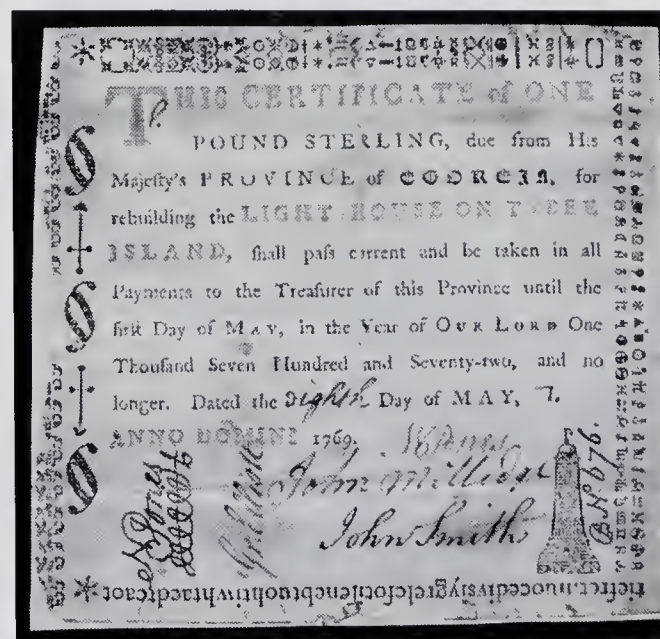 THIS CERTIFICATE of ONE
POUND STERLING, due from His
Majeſty's PROVINCE of GEORGIA, for
rebuilding the LIGHT HOUSE ON TYBEE
ISLAND, ſhall paſs current and be taken in all
Payments to the Treaſurer of this Province until the
firſt Day of MAY, in the Year of OUR LORD One
Thouſand Seven Hundred and Seventy-two, and no
longer. Dated the Eighth Day of MAY,
ANNO DOMINI 1769.
N Jones
John
John Smith
B No 676.